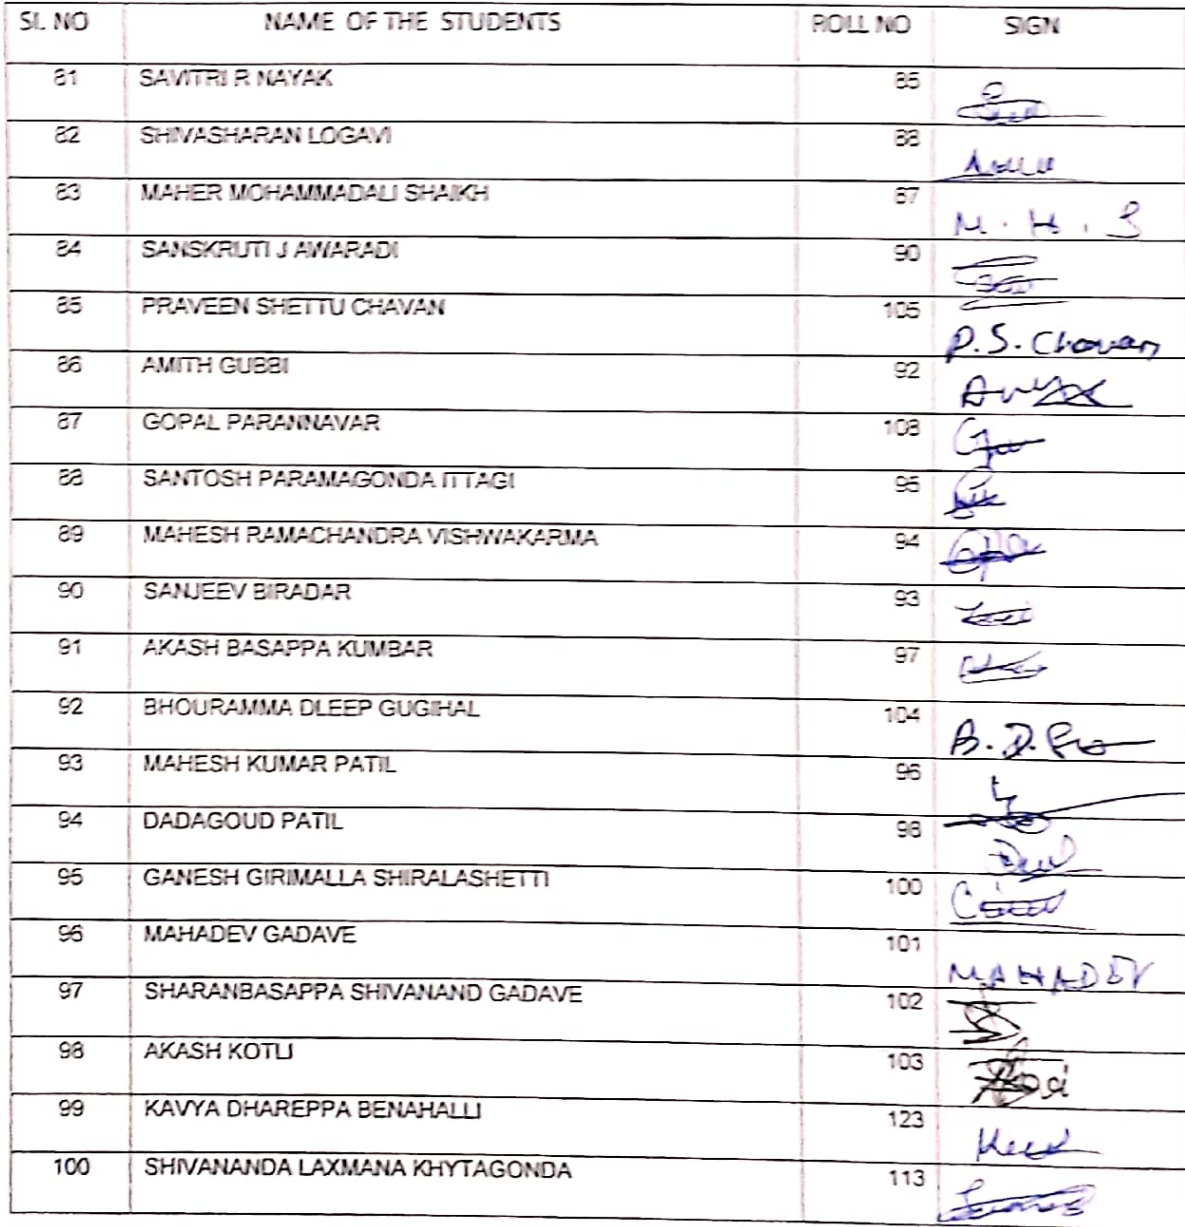 SL. NO NAME OF THE STUDENTS ROLL NO SIGN
81 SAVITRI R NAYAK 85
82 SHIVASHARAN LOGAVI 88
83 MAHER MOHAMMADALI SHAIKH 87 M. H. S
84 SANSKRUTI J AWARADI 90
85 PRAVEEN SHETTU CHAVAN 105 P.S. Chavan
86 AMITH GUBBI 92
87 GOPAL PARANNAVAR 108
88 SANTOSH PARAMAGONDA ITTAGI 95
89 MAHESH RAMACHANDRA VISHWAKARMA 94
90 SANJEEV BIRADAR 93
91 AKASH BASAPPA KUMBAR 97
92 BHOURAMMA DLEEP GUGIHAL 104 B. D.
93 MAHESH KUMAR PATIL 96
94 DADAGOUD PATIL 98
95 GANESH GIRIMALLA SHIRALASHETTI 100
96 MAHADEV GADAVE 101 MAHADEV
97 SHARANBASAPPA SHIVANAND GADAVE 102
98 AKASH KOTLI 103
99 KAVYA DHAREPPA BENAHALLI 123
100 SHIVANANDA LAXMANA KHYTAGONDA 113